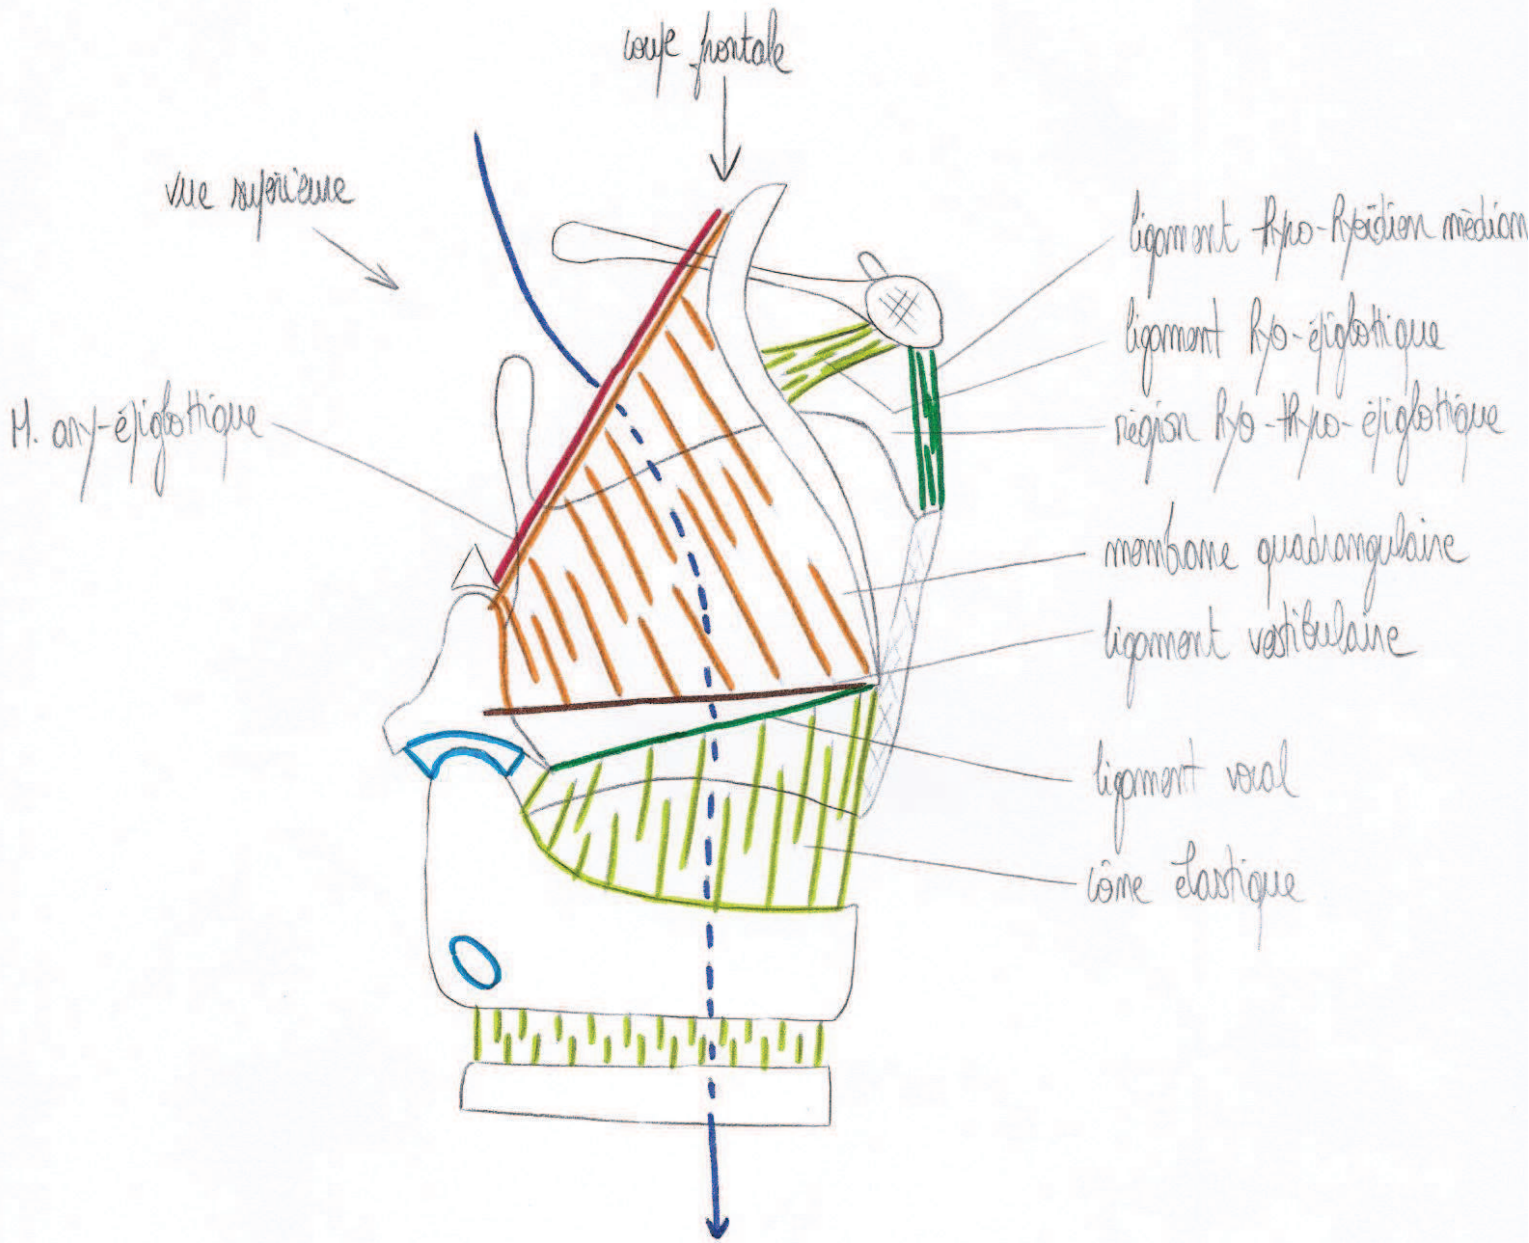 coupe frontale
vue supérieure
ligament thyro-hyoïdien médian
ligament hyo-épiglottique
M. ary-épiglottique
région hyo-thyro-épiglottique
membrane quadrangulaire
ligament vestibulaire
ligament vocal
cône élastique